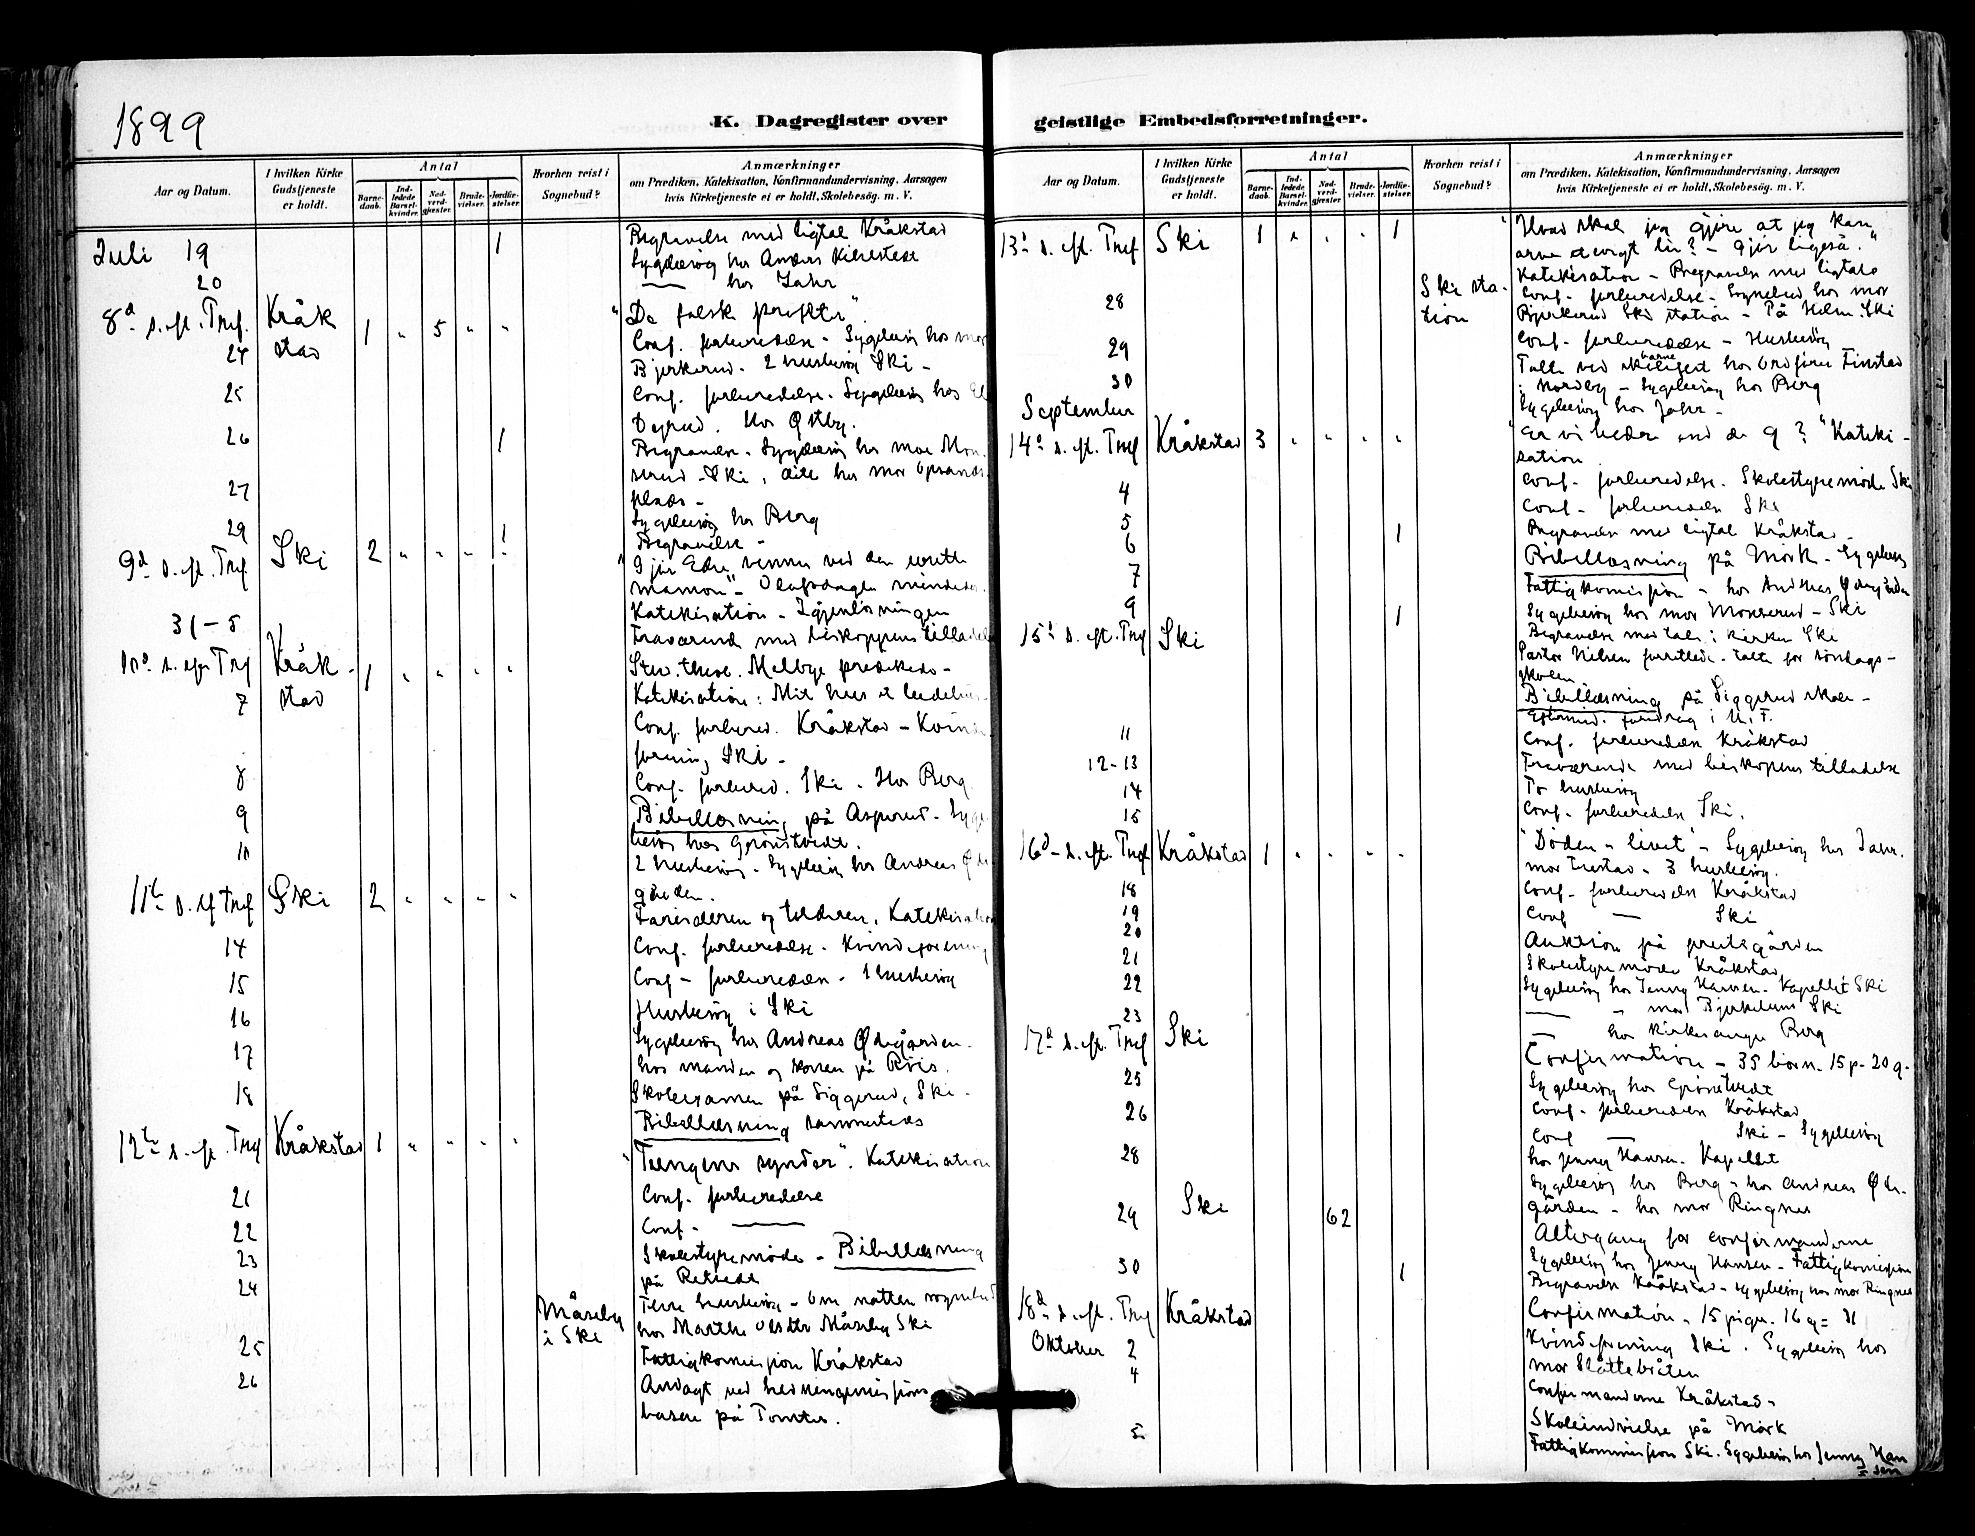 1899
K. Dagregister over
Aar og Datum.
I hvilken Kirke Gudstjeneste er holdt.
Antal
Barne-daab.
Ind-ledede Barsel-kvinder.
Nad-verd-gjæster.
Brude-vielser.
Jordfæ-stelser.
Hvorhen reist i Sognebud?
Anmærkninger
om Prædiken, Katekisation, Konfirmandundervisning, Aarsagen
hvis Kirketjeneste ei er holdt, Skolebesøg. m. V.
Juli 19 1 Begravelse med ligtal Kråkstad
Sygebesøg hos Anders
20 — hos Jahr
8d s. eft. Tref. Kråk 1 " 5 " "
stad
24 Conf. forberedelse - Sygebesøg hos mor
Bjerkerud - 2 husbesøg Ski -
25 Conf. forberedelse. Sygebesøg hos
Hos Østby.
26 1 Begravelse. Sygebesøg hos mor
Ski,
27 plads -
Sygebesøg hos Berg
29 1 Begravelse -
9d s. eft. Tref Ski 2 " " " "
mamon" - Olafsdagen
Katekisation -
31-5 Fraværende med biskoppens
10d s. eft Tref Kråk- 1 " " " "
stad
Stud. theol. Melbye
Katekisation:
7 Conf. forbered. Kråkstad -
Ski -
8 Conf. forbered. Ski - Hos Berg
9 Bibellæsning på Asperud -
besøg hos Grønstvedt.
10 2 husbesøg - Sygebesøg hos Andreas
gården.
11te s. ef Tref Ski 2 " " " "
Farisæeren og tolderen. Katekisation
14 Conf. forberedelse - Kvindeforening
15 Conf - forberedelse - 1 husbesøg
16 Husbesøg i Ski
17 Sygebesøg hos Andreas Ødegården -
hos manden og konen på Riis.
18 Skoleexamen på Siggerud, Ski -
Bibellæsning sammesteds
12te s. eft. Tref Kråkstad 1 " " " "
"Tungens synder". Katekisation
21 Conf. forberedelse
22 Conf - —
23 Skolestyremøde - Bibellæsning
på
24 husbesøg - Om natten sognebud
Måseby
i Ski
hos Marthe Olsdtr Måseby Ski
25 Fattigkommission Kråkstad
26 Andagt ved hedningemissions
basar på Tomter.
geistlige Embedsforretninger.
Aar og Datum.
I hvilken Kirke Gudstjeneste er holdt.
Antal
Barne-daab.
Ind-ledede Barsel-kvinder.
Nad-verd-gjæster.
Brude-vielser.
Jordfæ-stelser.
Hvorhen reist i Sognebud?
Anmærkninger
om Prædiken, Katekisation, Konfirmandundervisning, Aarsagen
hvis Kirketjeneste ei er holdt, Skolebesøg. m. V.
13d s. eft. Tref Ski 1 " " " 1
"Hvad skal jeg gjøre at jeg kan
arve evigt liv? - Gjør ligeså."
Katekisation - Begravelse med ligtale
28 Ski sta-
tion
Conf - forberedelse - Sognebud hos mor
Bjerkerud Ski station - På Holm. Ski
29 Conf - forberedelse - Husbesøg
30 Tale ved hos ordfører Finstad
i Nordby - Sygebesøg hos Berg
September Sygebesøg hos Jahr -
14d s. eft. Tref Kråkstad 3 " " " "
"Er vi bedre end de 9?" Kateki-
sation
4 Conf - forberedelse. Skolestyremøde Ski
5 Conf - forberedelse Ski
6 1 Begravelse med ligtal Kråkstad -
7 Bibellæsning på Mørk - Sygebesøg
Fattigkomission - hos Andreas Ødegården
9 1 Sygebesøg hos mor Monserud - Ski
Begravelse med tale i kirken Ski
15d s. eft. Tref Ski
Pastor Nilsen forrettede - talte for søndags-
skolen
Bibellæsning på Siggerud skole -
foredrag i U. F.
11 Conf. forberedelse Kråkstad
12-13 Fraværende med biskopens tilladelse
14 To husbesøg
15 Conf. forberedelse Ski.
16d s. eft. Tref Kråkstad 1 " " " "
"Døden - livet" - Sygebesøg hos Jahr.
mor - 3 husbesøg.
18 Conf - forberedelse Kråkstad
19 Conf — Ski
20 Auktion på prestegården
21 Skolestyremøde Kråkstad
22 Sygebesøg hos Jenny Hansen - Kapellet Ski
— " mor Ski
23 — hos kirkesanger Berg
17d s. eft. Tref Ski
Confirmation - 35 børn - 15 p - 20 g -
25 Sygebesøg hos Grønstvedt
Conf - forberedelse Kråkstad
26 Conf — Ski - Sygebesøg
hos Jenny Hansen - Kapellet
28 Sygebesøg hos Berg - hos Andreas Øde-
gården - hos mor Ringnes
29 Ski 62 Altergang for confirmanderne
Sygebesøg hos Jenny Hansen - Fattigkomission
30 1 Begravelse Kråkstad - sygebesøg hos mor Ringnes
18d s. eft. Tref Kråkstad
Confirmation - 15 piger. 16 g = 31
Oktober 2 Kvindeforening Ski. Sygebesøg hos
mor Slåttebråten
4 Confirmanderne Kråkstad -
Skoleindvielse på Mørk
5 Fattigkommission Ski. Sygebesøg hos Jenny Han
sen